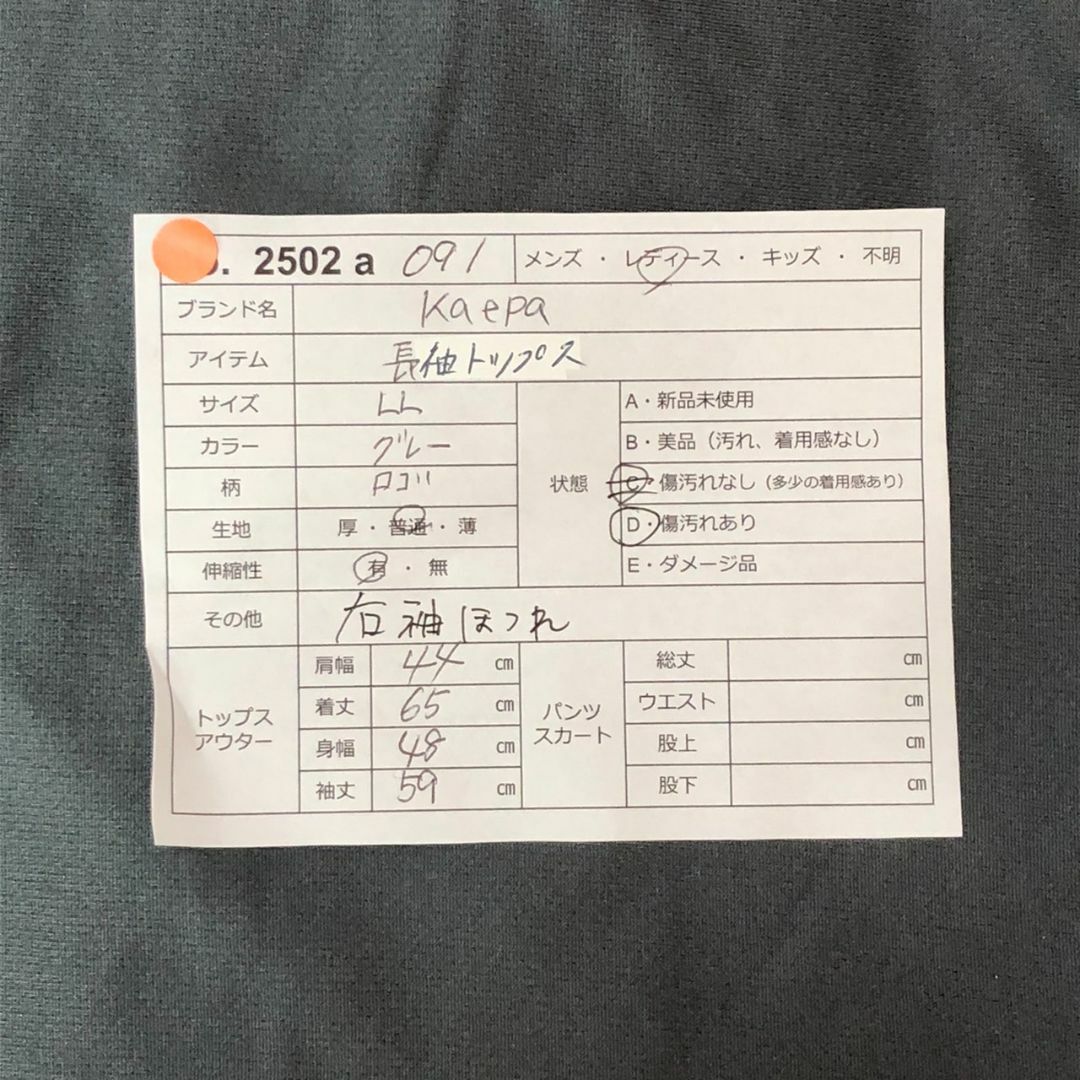 . 2502 a 091 メンズ ・ レディース ・ キッズ ・ 不明
ブランド名 Kaepa
アイテム 長袖トップス
サイズ LL
カラー グレー
柄 ロゴ
生地 厚 ・ 普通 ・ 薄
伸縮性 有 ・ 無
状態
A・新品未使用
B・美品(汚れ、着用感なし)
C・傷汚れなし(多少の着用感あり)
D・傷汚れあり
E・ダメージ品
その他 右袖ほつれ
トップス
アウター
肩幅 44 cm
着丈 65 cm
身幅 48 cm
袖丈 59 cm
パンツ
スカート
総丈 cm
ウエスト cm
股上 cm
股下 cm